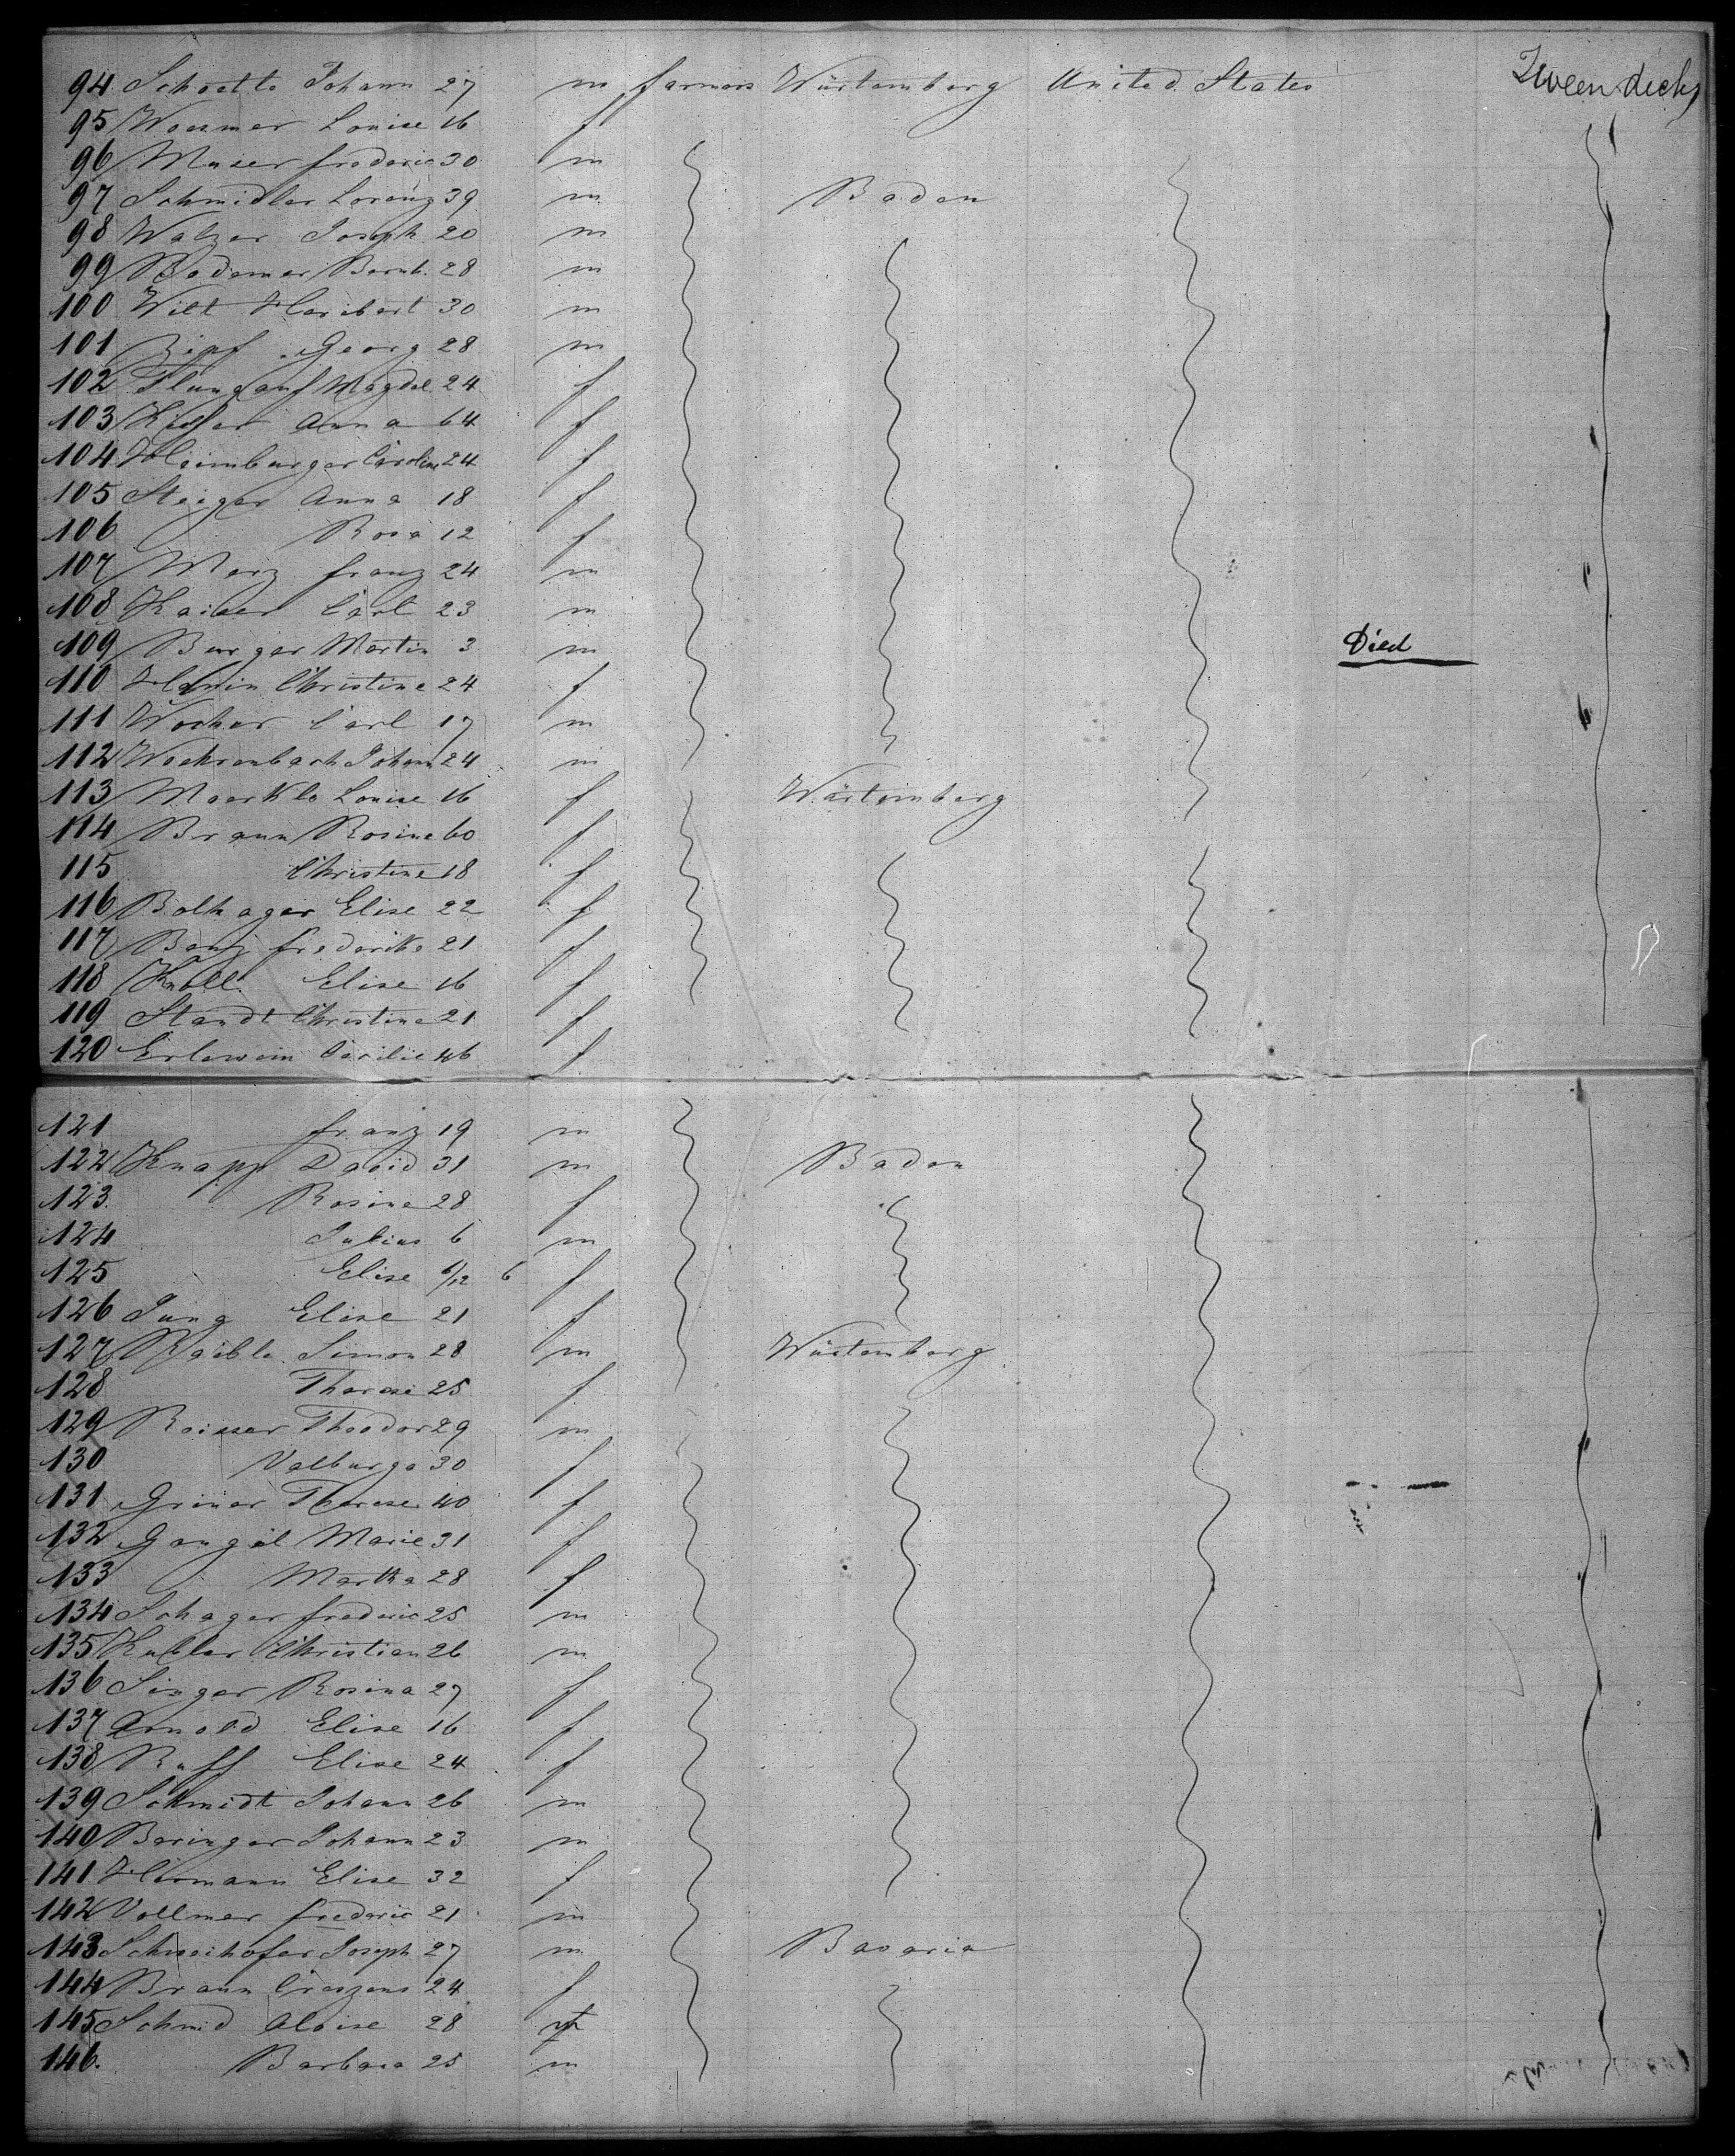 94 Schoettle Johann 27 m farmers Würtemberg United States Zween decks
95 Woesmer Louise 16 f
96 Muser frederic 30 m
97 Schmidler Lorenz 39 m Baden
98 Walzer Joseph 20 m
99 Bodemer Bernh. 28 m
100 Wilt Heribert 30 m
101 Zipf Georg 28 m
102 Flungauf Magdal. 24 f
103 Kiefer Anna 64 f
104 Heimburger Caroline 24 f
105 Steiger Anna 18 f
106 Rosa 12 f
107 Merz franz 24 m
108 Kaiser Carl 23 m
109 Burger Martin 3 m Died
110 Christine 24 f
111 Wocher Carl 17 m
112 Wochrenbach Johann 24 m
113 Maerkle Louise 16 f Würtemberg
114 Braun Rosine 60 f
115 Christine 18 f
116 Bolhager Elise 22 f
117 Benz frederike 21 f
118 Knoll Elise 16 f
119 Standt Christine 21 f
120 Erlewein Cecilie 46 f
121 franz 19 m
122 Knapp David 31 m Baden
123 Rosine 28 f
124 Julius 6 m
125 Elise 6/12 6 f
126 Jung Elise 21 f
127 Raible Simon 28 m Würtemberg
128 Therese 25 f
129 Reisser Theodor 29 m
130 Valburga 30 f
131 Griner Therese 40 f
132 Gangel Marie 31 f
133 Martha 28 f
134 Schager frederic 25 m
135 Kubler Christian 26 m
136 Singer Rosina 27 f
137 Arnold Elise 16 f
138 Ruff Elise 24 f
139 Schmidt Johann 26 m
140 Beringer Johann 23 m
141 Hermann Elise 32 f
142 Vollmer frederic 21 m
143 Schweihofer Joseph 27 m Bavaria
144 Braun Creszens 24 f
145 Schmid Aloise 28
146. Barbara 25 m